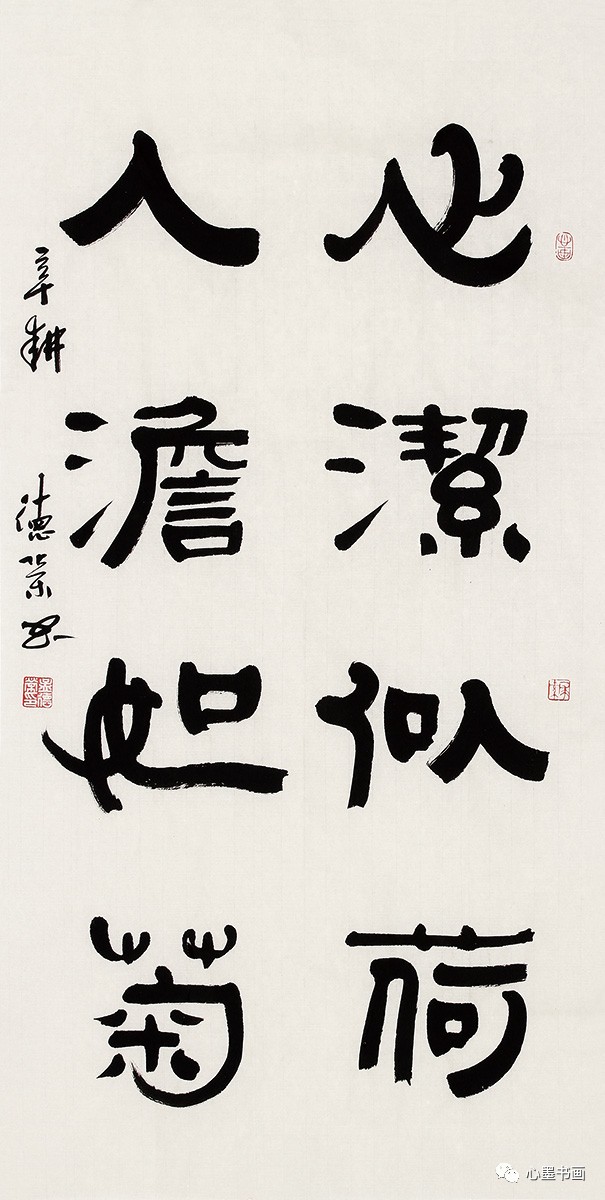 心潔似荷
人澹如菊
辛耕
德榮
心墨书画